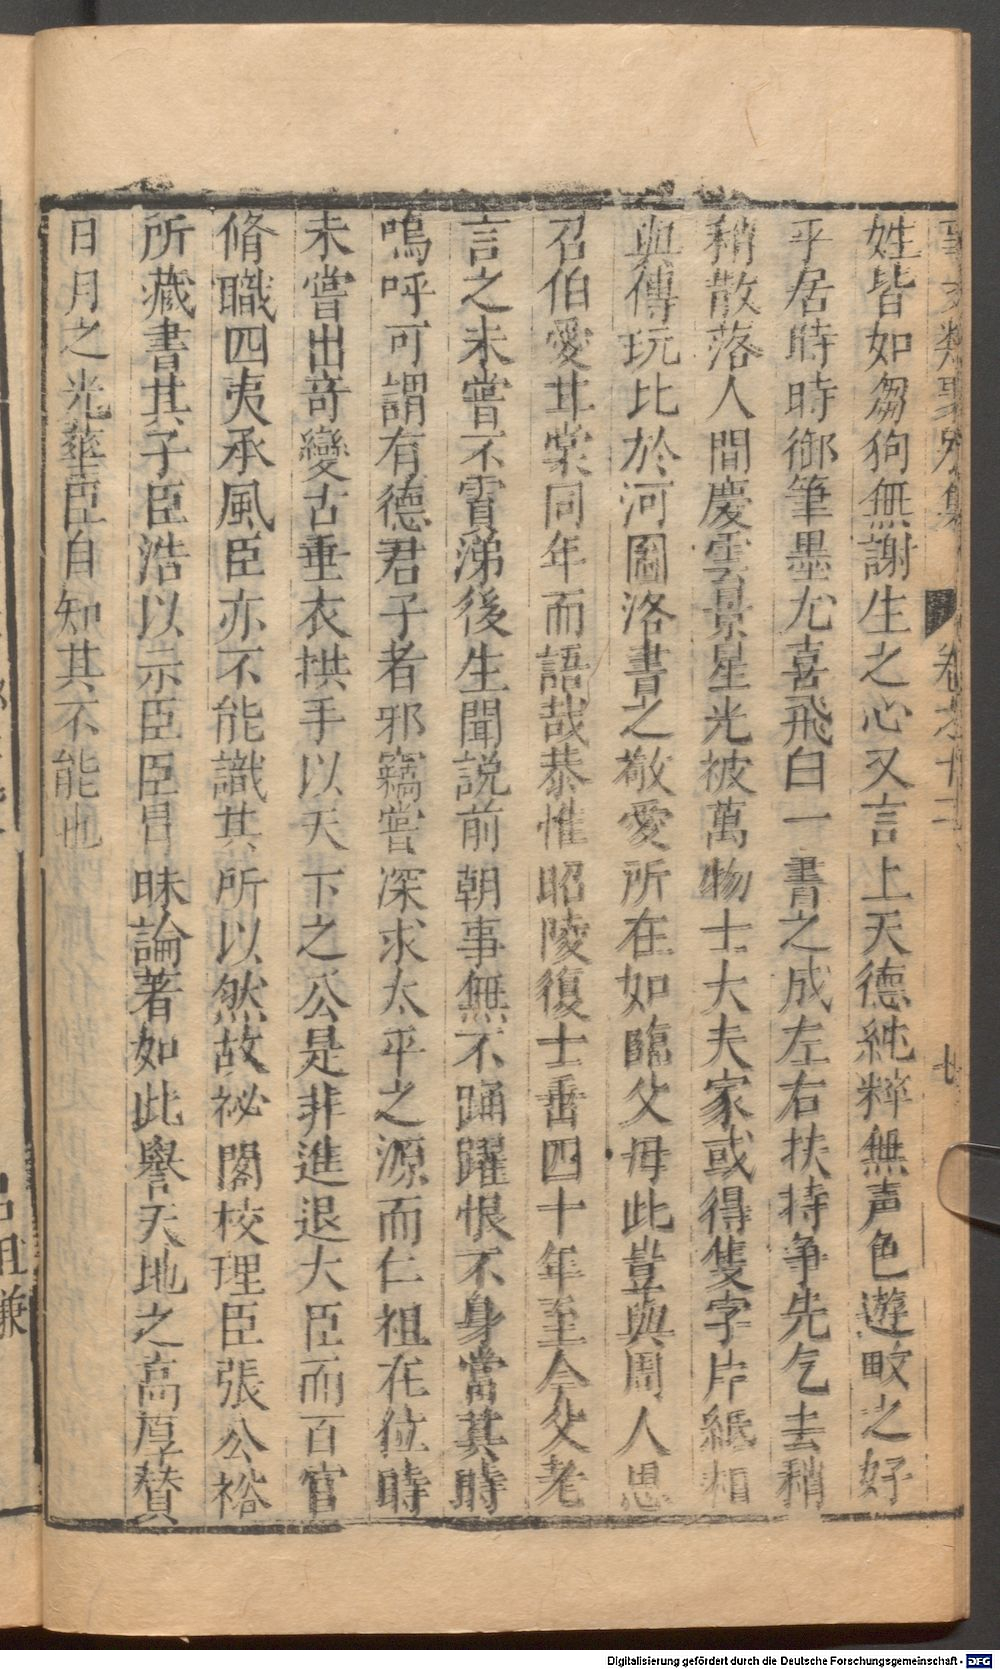 事文類聚別集 卷之十二 廿
姓皆如芻狗無謝生之心又言上天德純粹無声色遊畋之好
乎居時時御筆墨尤喜飛白一書之成左右扶持争先乞去稍
稍散落人間慶雲景星光被萬物士大夫家或得隻字片紙相
與傳玩比於河圖洛書之敬愛所在如臨父母此豈與周人思
召伯愛甘棠同年而語哉恭惟昭陵復士垂四十年至今父老
言之未嘗不賈涕後生聞説前朝事無不踊躍恨不身當其時
嗚呼可謂有德君子者邪竊嘗深求太平之源而仁祖在位時
未嘗出竒變古垂衣拱手以天下之公是非進退大臣而百官
脩職四夷承風臣亦不能識其所以然故祕閣校理臣張公裕
所藏書其子臣浩以示臣臣昌昧論著如此譽天地之高厚賛
日月之光華臣自知其不能也
Digitalisierung gefördert durch die Deutsche Forschungsgemeinschaft - DFG